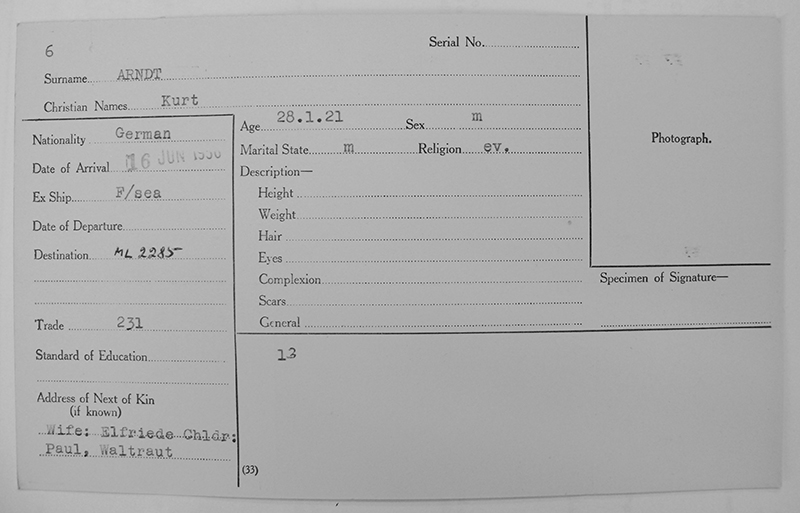 6
Serial No.
Surname ARNDT
Christian Names Kurt
Nationality German
Date of Arrival 16 JUN
Ex Ship F/sea
Date of Departure
Destination ML 2285
Trade 231
Standard of Education
Address of Next of Kin
(if known)
Wife: Elfriede Chldr:
Paul, Waltraut
Age 28.1.21 Sex m
Marital State m Religion ev.
Description—
Height
Weight
Hair
Eyes
Complexion
Scars
General
13
(33)
Photograph.
Specimen of Signature—